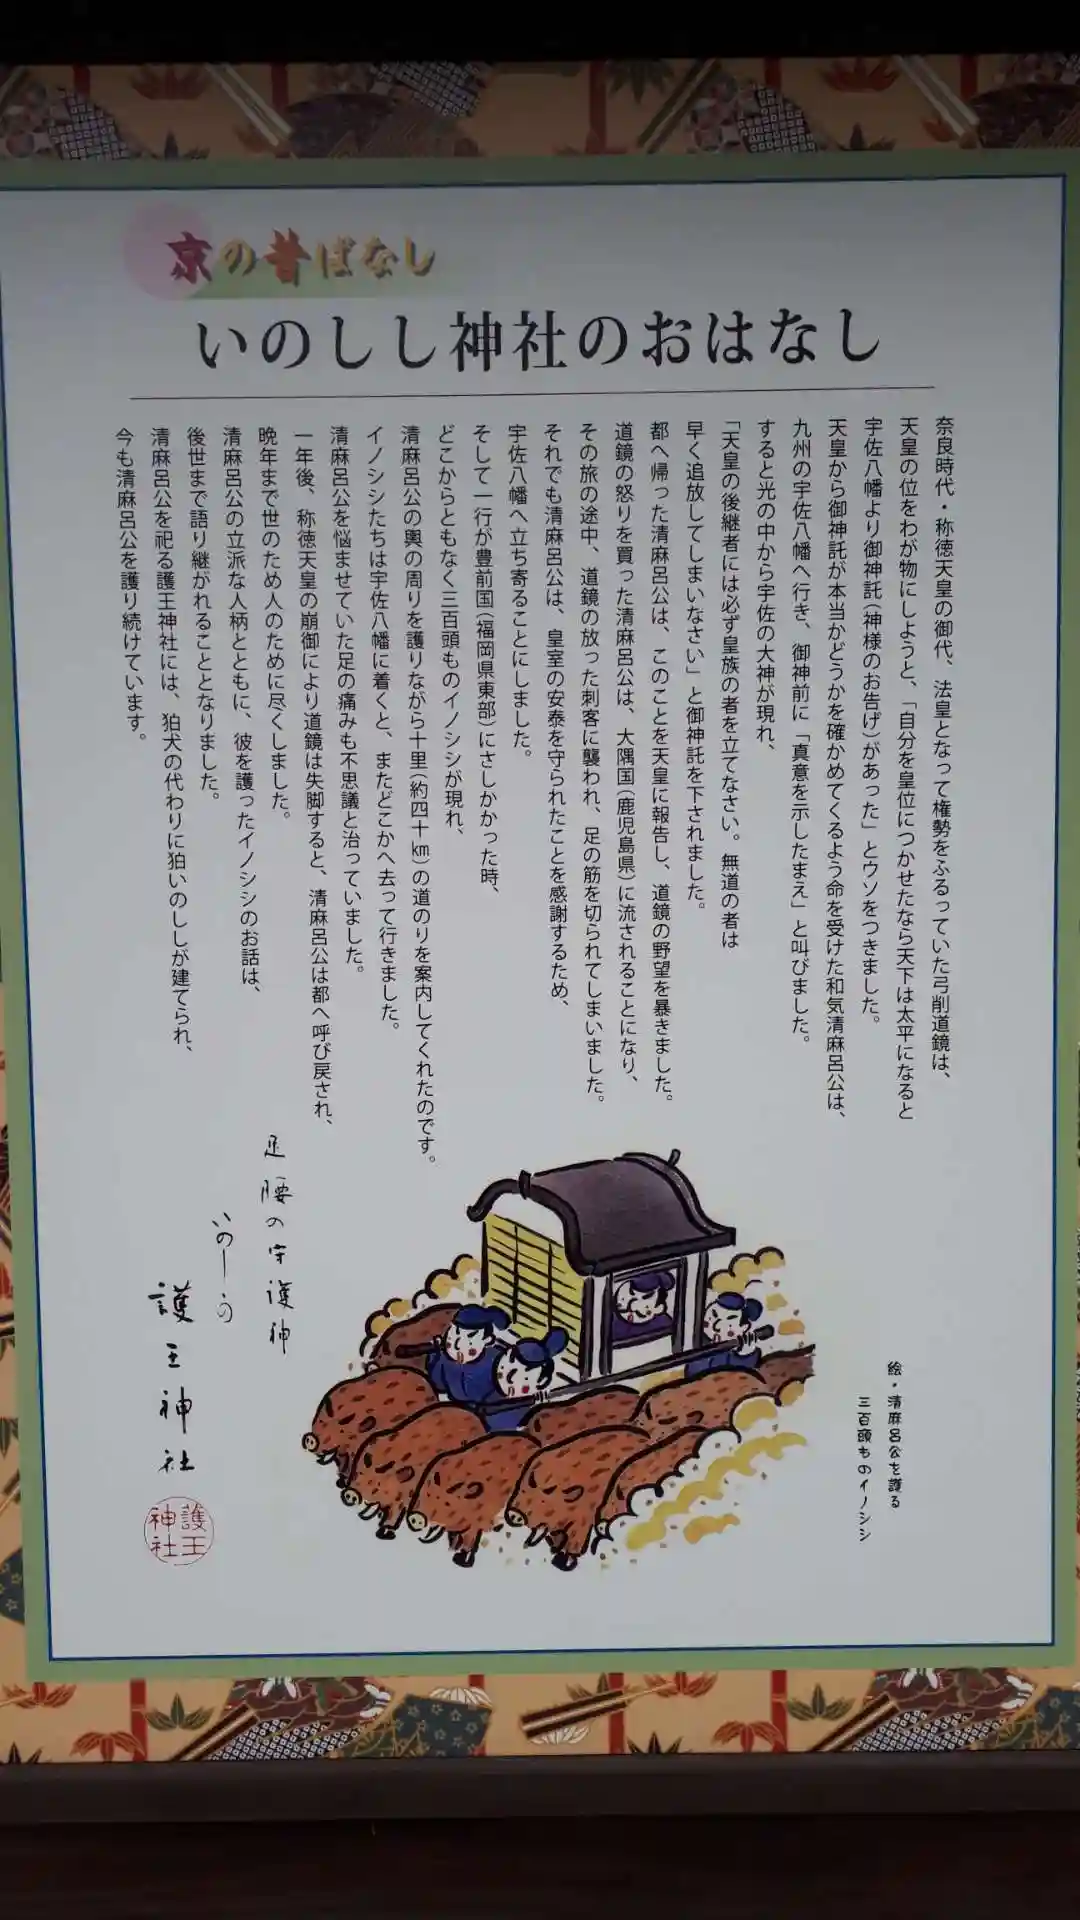 京の昔ばなし
いのしし神社のおはなし
奈良時代・称徳天皇の御代、法皇となって権勢をふるっていた弓削道鏡は、
天皇の位をわが物にしようと、「自分を皇位につかせたなら天下は太平になると
宇佐八幡より御神託(神様のお告げ)があった」とウソをつきました。
天皇から御神託が本当かどうかを確かめてくるよう命を受けた和気清麻呂公は、
九州の宇佐八幡へ行き、御神前に「真意を示したまえ」と叫びました。
すると光の中から宇佐の大神が現れ、
「天皇の後継者には必ず皇族の者を立てなさい。無道の者は
早く追放してしまいなさい」と御神託を下されました。
都へ帰った清麻呂公は、このことを天皇に報告し、道鏡の野望を暴きました。
道鏡の怒りを買った清麻呂公は、大隅国(鹿児島県)に流されることになり、
その旅の途中、道鏡の放った刺客に襲われ、足の筋を切られてしまいました。
それでも清麻呂公は、皇室の安泰を守られたことを感謝するため、
宇佐八幡へ立ち寄ることにしました。
そして一行が豊前国(福岡県東部)にさしかかった時、
どこからともなく三百頭ものイノシシが現れ、
清麻呂公の輿の周りを護りながら十里(約四十㎞)の道のりを案内してくれたのです。
イノシシたちは宇佐八幡に着くと、またどこかへ去って行きました。
清麻呂公を悩ませていた足の痛みも不思議と治っていました。
一年後、称徳天皇の崩御により道鏡は失脚すると、清麻呂公は都へ呼び戻され、
晩年まで世のため人のために尽くしました。
清麻呂公の立派な人柄とともに、彼を護ったイノシシのお話は、
後世まで語り継がれることとなりました。
清麻呂公を祀る護王神社には、狛犬の代わりに狛いのししが建てられ、
今も清麻呂公を護り続けています。
足腰の守護神
護王神社
護王神社
絵・清麻呂公を護る
三百頭ものイノシシ